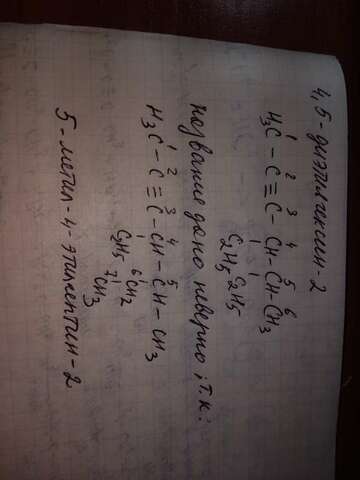 4,5-диэтилгексин-2
1 2 3 4 5 6
H₃C – C ≡ C – CH – CH – CH₃
C₂H₅ C₂H₅
название дано неверно, т.к:
1 2 3 4 5
H₃C – C ≡ C – CH – CH – CH₃
C₂H₅ 6 CH₂
7 CH₃
5-метил-4-этилгептин-2